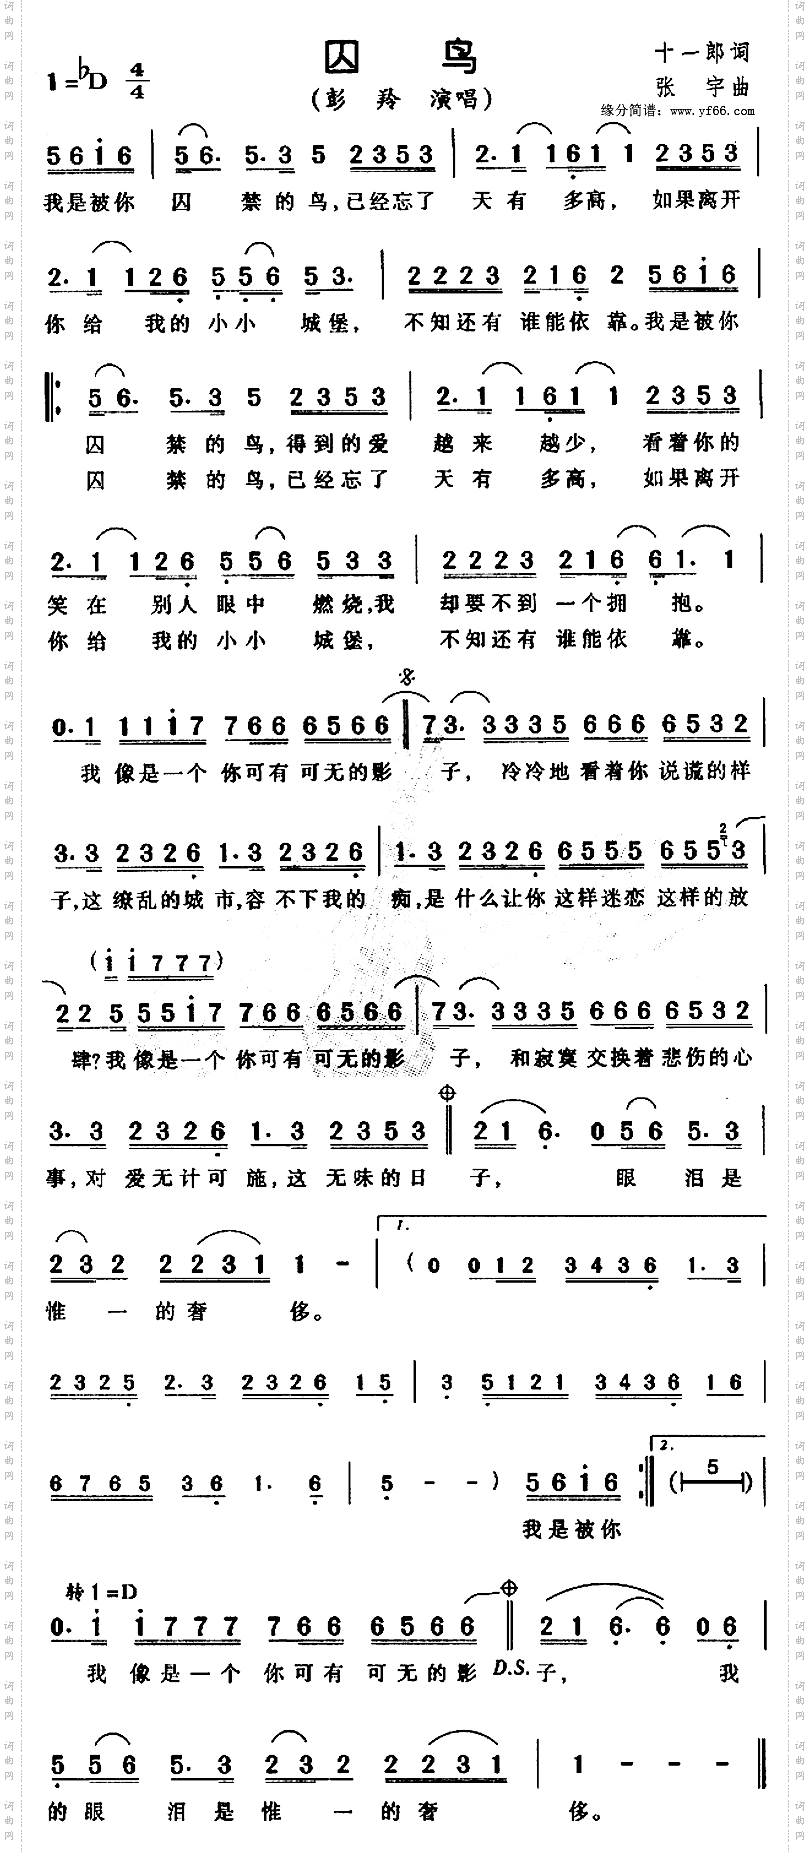 囚 鸟
十一郎词
1=♭D 4/4
(彭 羚 演唱)
张 宇曲
缘分简谱: www.yf66.com
5 6 i 6 | 5 6. 5. 3 5 2 3 5 3 | 2. 1 1 6 1 1 2 3 5 3
我是被你 囚 禁的鸟,已经忘了 天有 多高, 如果离开
2. 1 1 2 6 5 5 6 5 3. | 2 2 2 3 2 1 6 2 5 6 i 6 |
你给 我的小小 城堡, 不知还有谁能依靠。我是被你
‖: 5 6. 5. 3 5 2 3 5 3 | 2. 1 1 6 1 1 2 3 5 3 |
囚 禁的鸟,得到的爱 越来 越少, 看着你的
囚 禁的鸟,已经忘了 天有 多高, 如果离开
2. 1 1 2 6 5 5 6 5 3 3 | 2 2 2 3 2 1 6 6 1. 1
笑在 别人眼中 燃烧,我 却要不到一个拥 抱。
你给 我的小小 城堡, 不知还有谁能依 靠。
0. 1 1 1 i 7 7 6 6 6 5 6 6 | 7 3. 3 3 3 5 6 6 6 6 5 3 2 |
我像是一个你可有可无的影 子, 冷冷地看着你说谎的样
3. 3 2 3 2 6 1. 3 2 3 2 6 | 1. 3 2 3 2 6 6 5 5 5 6 5 5 3
子,这缭乱的城市,容不下我的 痴,是什么让你这样迷恋这样的放
(i i 7 7 7)
2 2 5 5 5 i 7 7 6 6 6 5 6 6 | 7 3. 3 3 3 5 6 6 6 6 5 3 2 |
肆?我像是一个你可有可无的影 子, 和寂寞交换着悲伤的心
3. 3 2 3 2 6 1. 3 2 3 5 3 ‖ 2 1 6. 0 5 6 5. 3
事,对爱无计可施,这无味的日 子, 眼 泪是
1.
2 3 2 2 2 3 1 1 - | (0 0 1 2 3 4 3 6 1. 3 |
惟 一的奢 侈。
2 3 2 5 2. 3 2 3 2 6 1 5 | 3 5 1 2 1 3 4 3 6 1 6
2.
6 7 6 5 3 6 1. 6 | 5 - - ) 5 6 i 6 :‖ (5) |
我是被你
转1=D
0. i i 7 7 7 7 6 6 6 5 6 6 ‖ 2 1 6. 6 0 6 |
我像是一个你可有可无的影 D.S. 子, 我
5 5 6 5. 3 2 3 2 2 2 3 1 | 1 - - - ‖
的眼 泪是惟 一的奢 侈。